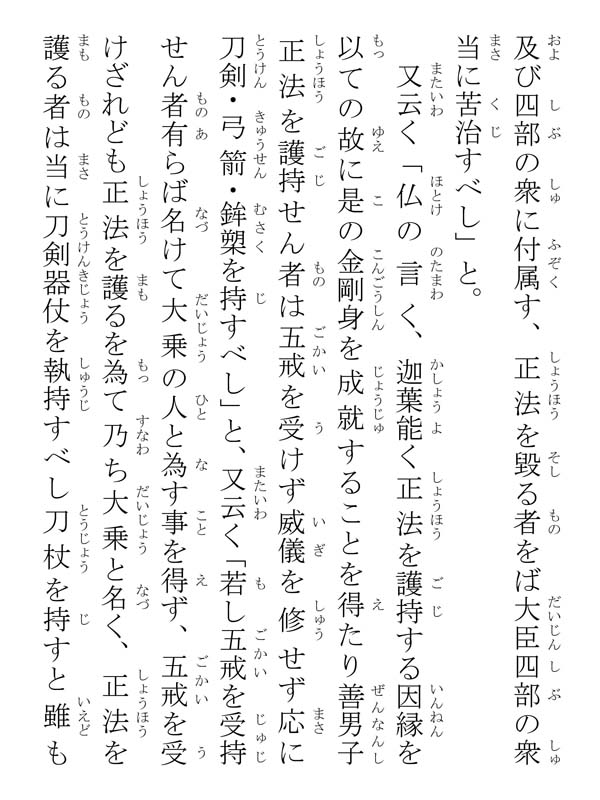 及び四部の衆に付属す、正法を毀る者をば大臣四部の衆
当に苦治すべし」と。
又云く「仏の言く、迦葉能く正法を護持する因縁を
以ての故に是の金剛身を成就することを得たり善男子
正法を護持せん者は五戒を受けず威儀を修せず応に
刀剣・弓箭・鉾槊を持すべし」と、又云く「若し五戒を受持
せん者有らば名けて大乗の人と為す事を得ず、五戒を受
けざれども正法を護るを為て乃ち大乗と名く、正法を
護る者は当に刀剣器仗を執持すべし刀杖を持すと雖も